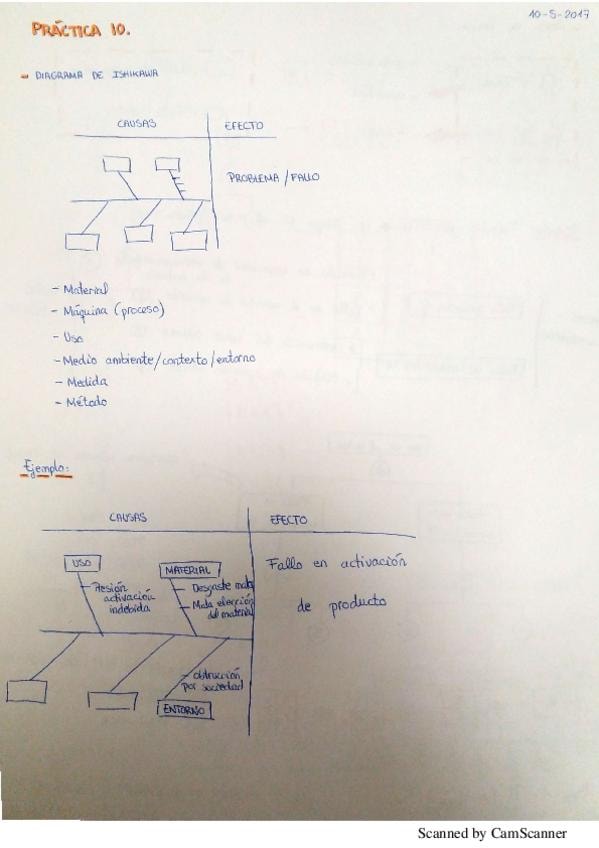 10-5-2017
PRÁCTICA 10.
- DIAGRAMA DE ISHIKAWA
CAUSAS
EFECTO
PROBLEMA / FALLO
- Material
- Máquina (proceso)
- Uso
- Medio ambiente/contexto/entorno
- Medida
- Método
Ejemplo:
CAUSAS
EFECTO
USO
- Presión
activación
indebida
MATERIAL
- Desgaste
- Mala elección
del material
Fallo en activación
de producto
- obstrucción
por suciedad
ENTORNO
Scanned by CamScanner